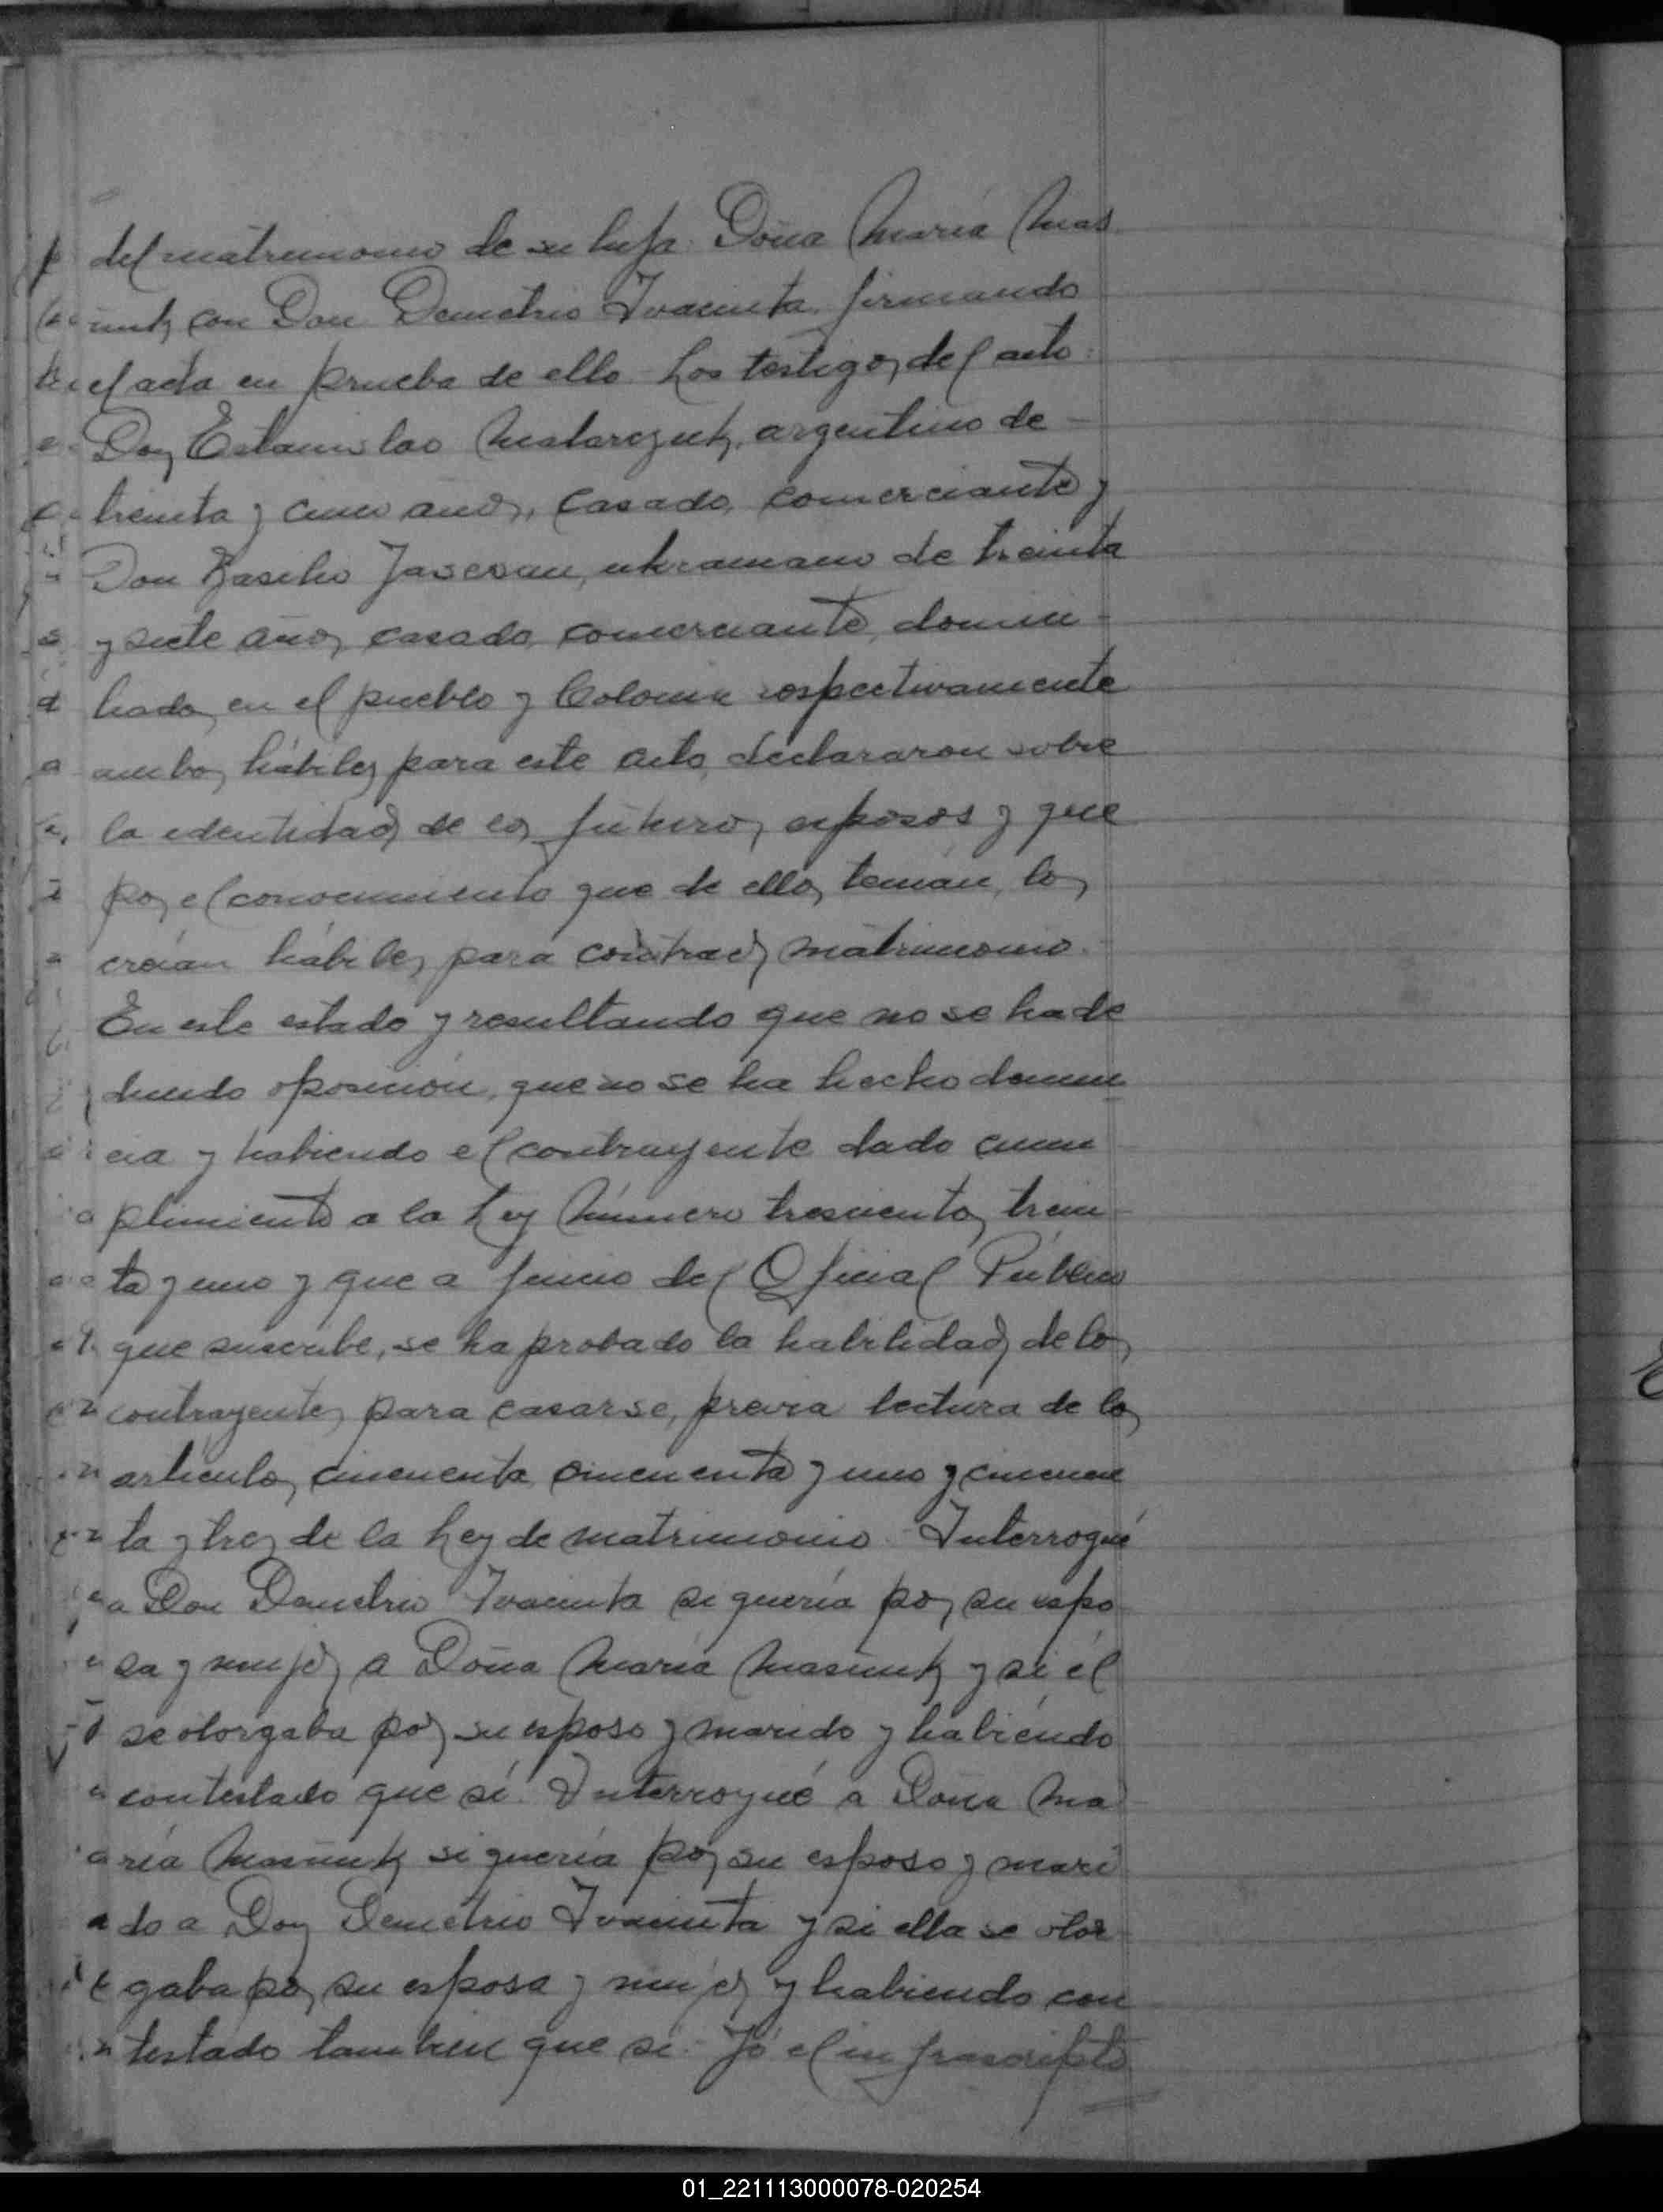 del matrimonio de su hija Doña María Mas
iuk, con Don Demetrio Ivaciuta, firmando
el acta en prueba de ello. Los testigos del acto:
Don Estanislao Malarczuk, argentino de
treinta y cinco años, casado, comerciante y
Don Basilio, ukraniano de treinta
y siete años, casado, comerciante, domici-
liados en el pueblo y Colonia respectivamente
ambos hábiles para este acto, declararon sobre
la identidad de los futuros esposos y que
por el conocimiento que de ellos tenían, los
creían hábiles para contraer matrimonio.
En este estado y resultando que no se ha de
ducido oposición, que no se ha hecho denun
cia y habiendo el contrayente dado cum
plimiento a la Ley Número trescientos trein-
ta y uno y que a juicio del Oficial Público
que suscribe, se ha probado la habilidad de los
contrayentes para casarse, previa lectura de los
artículos cincuenta, cincuenta y uno y cincuen
ta y tres de la Ley de matrimonio. Interrogué
a Don Demetrio Ivaciuta si quería por su espo
sa y mujer a Doña María Masiuk y si él
se otorgaba por su esposo y marido y habiendo
contestado que sí. Interrogué a Doña Ma
ría Masiuk si quería por su esposo y mari
do a Don Demetrio Ivaciuta y si ella se otor
gaba por su esposa y mujer y habiendo con
testado tambien que sí. Yó el infrascripto
01_221113000078-020254